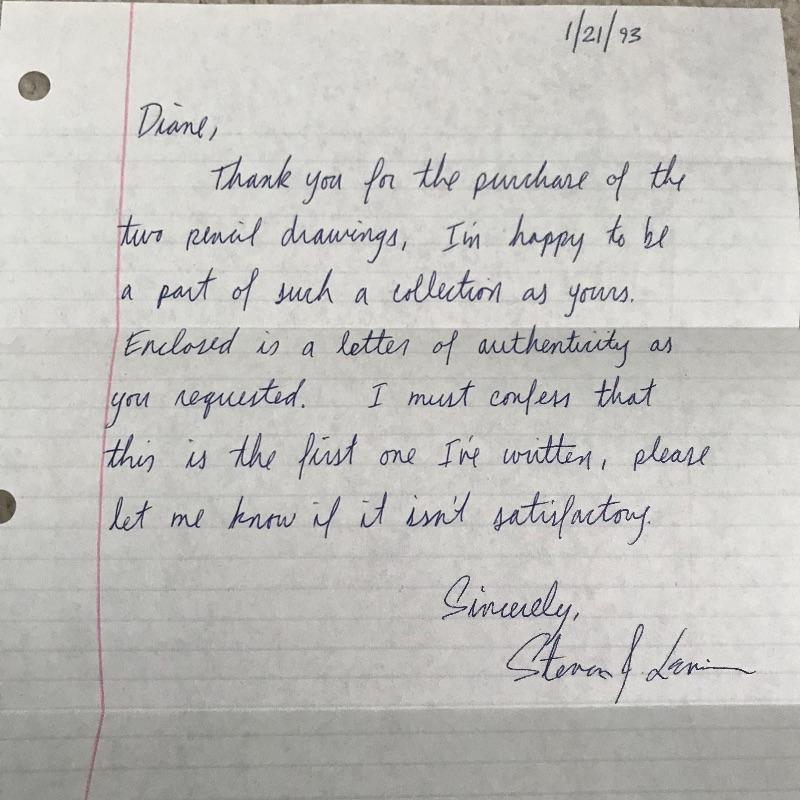 1/21/93
Diane,
Thank you for the purchase of the
two pencil drawings, I'm happy to be
a part of such a collection as yours.
Enclosed is a letter of authenticity as
you requested. I must confess that
this is the first one I've written, please
let me know if it isn't satisfactory.
Sincerely,
Steven J. Levin